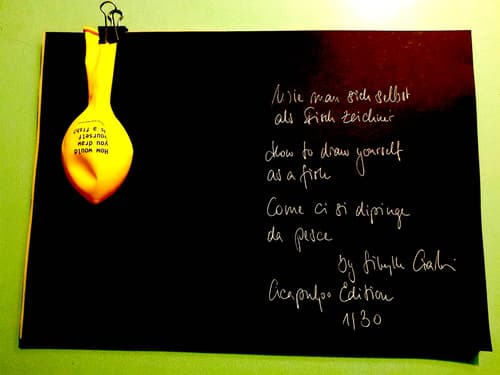 How would
you draw
yourself
as a fish?
Wie man sich selbst
als Fisch zeichnet
How to draw yourself
as a fish
Come ci si dipinge
da pesce
by Sibylle
Acapulco Edition
1/30